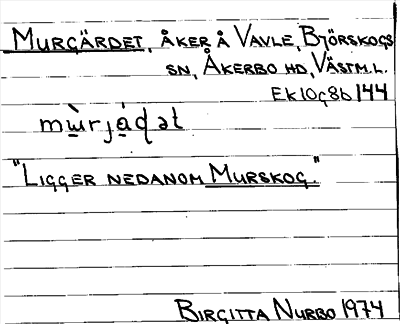 MURGÄRDET, ÅKER Å VAVLE, BJÖRSKOGS
SN, ÅKERBO HD, VÄSTM.L.
EK 10G8b 144
mẁ̲rjá̲ɖət
"LIGGER NEDANOM MURSKOG."
BIRGITTA NURBO 1974